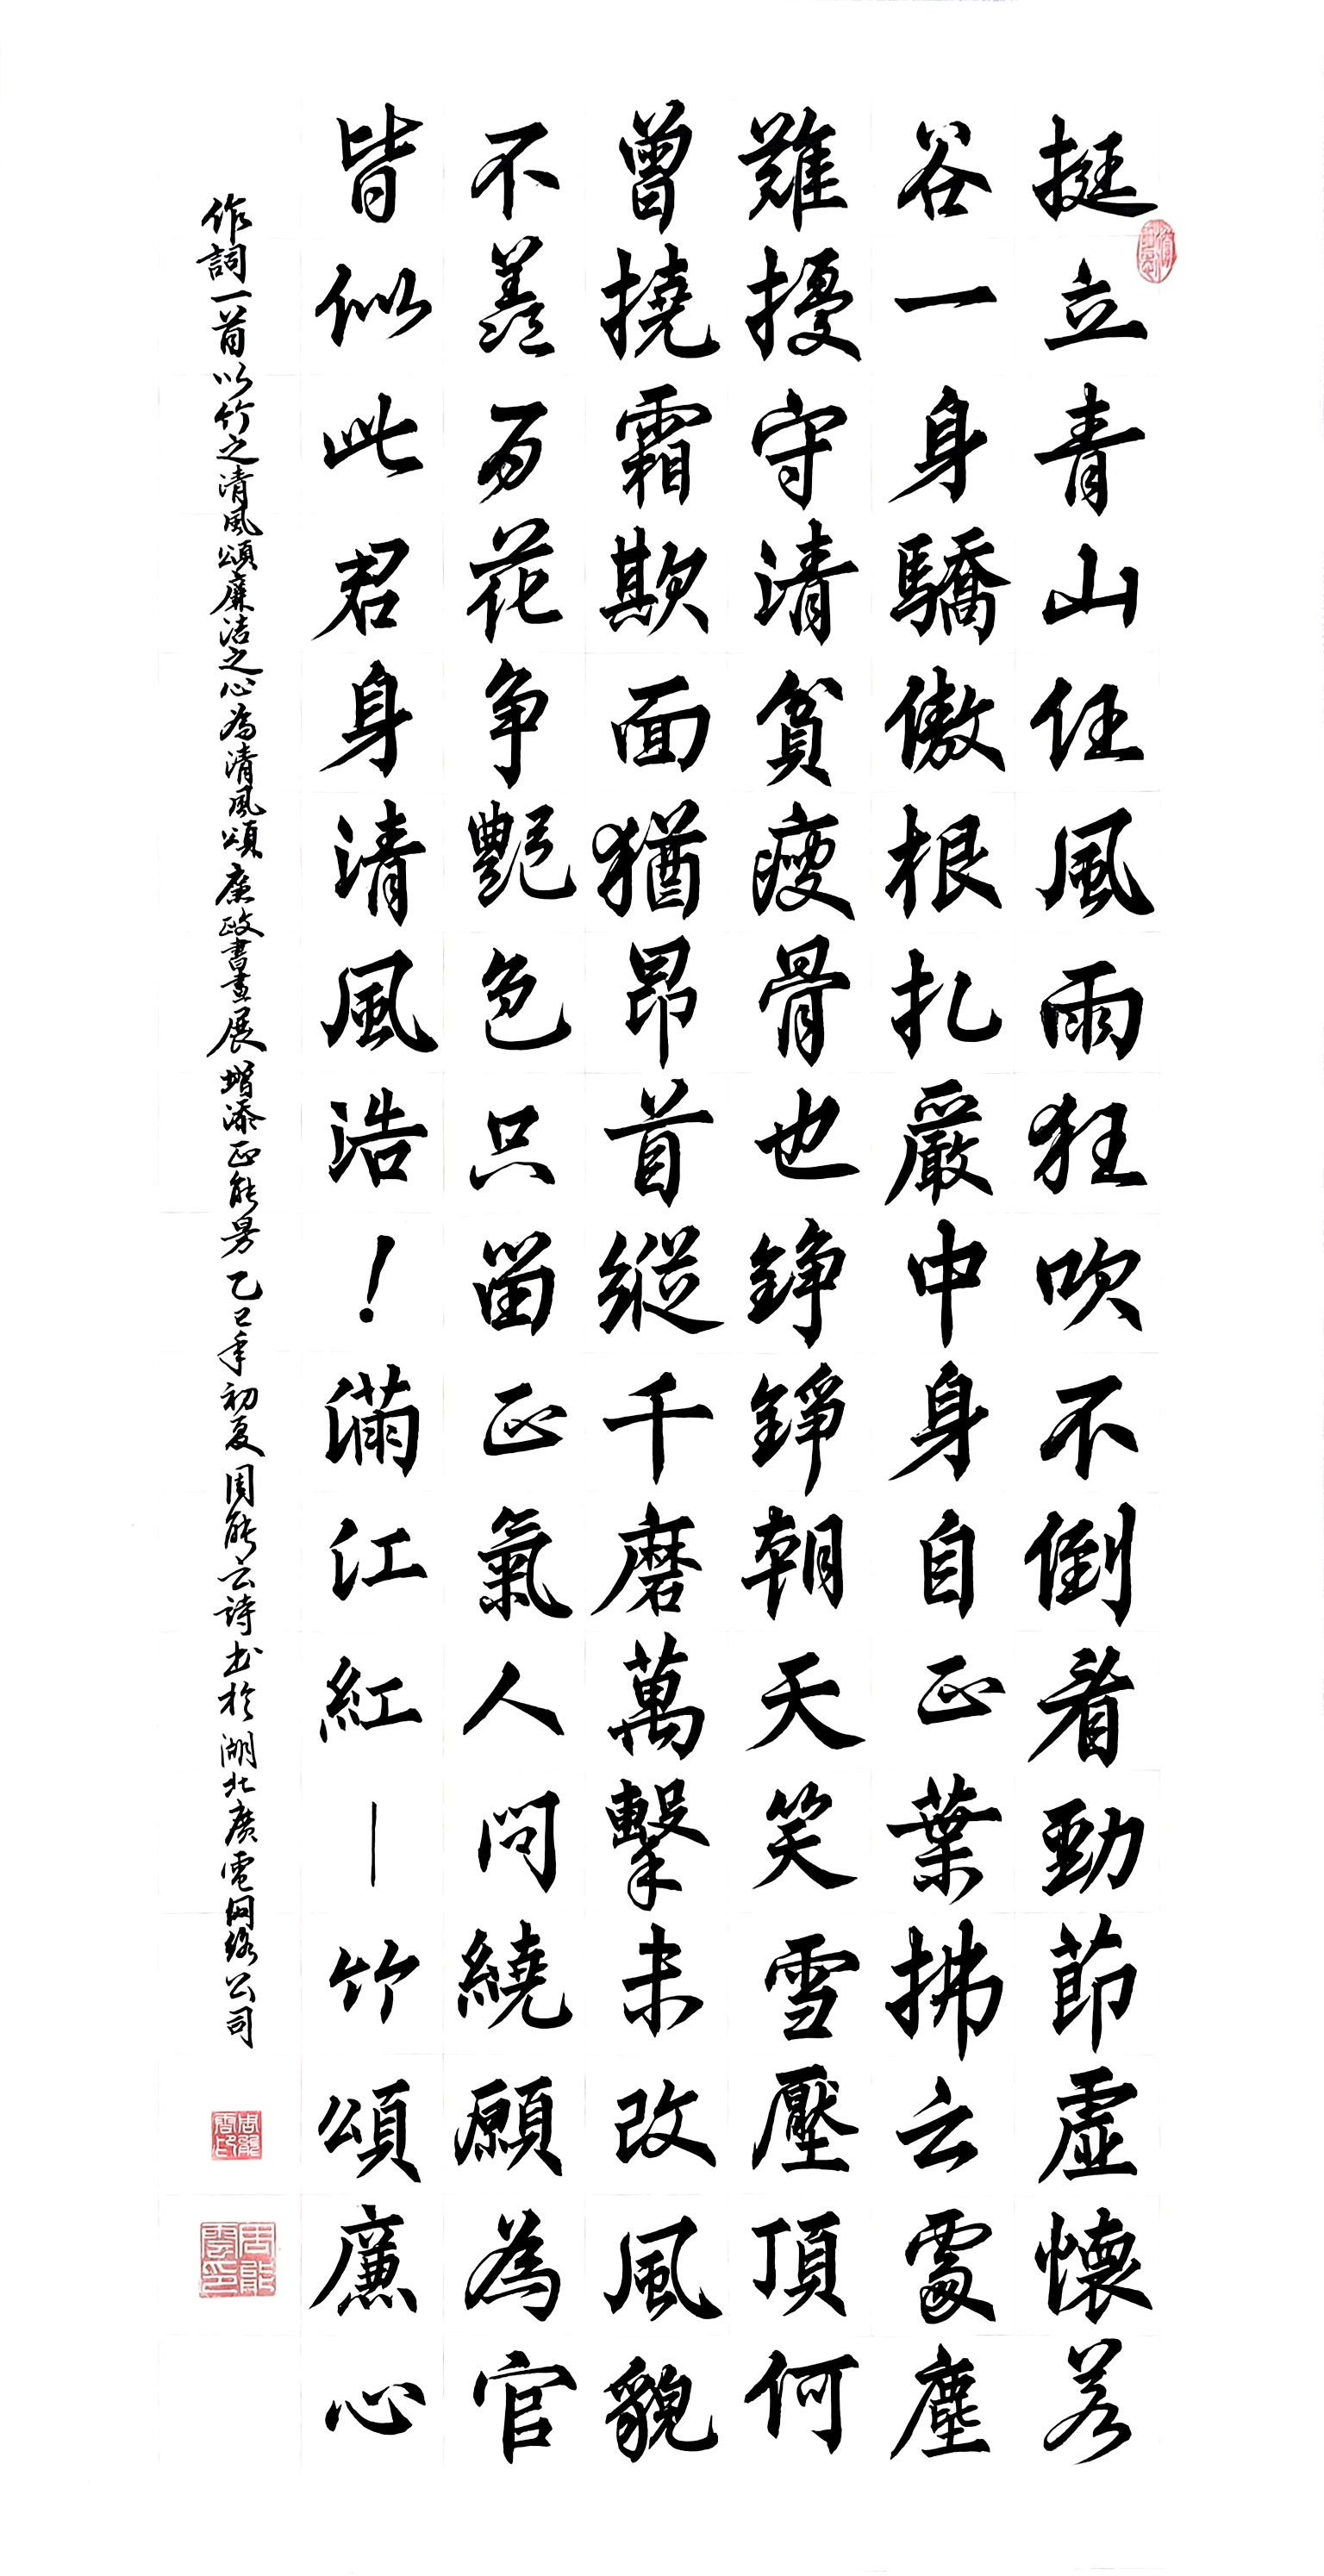 挺立青山任風雨狂吹不倒看勁節虛懷若
谷一身驕傲根扎嚴中身自正葉拂云處塵
難擾守清貧瘦骨也錚錚朝天笑雪壓頂何
曾撓霜欺面猶昂首縱千磨萬擊未改風貌
不羨万花爭艷色只留正氣人間繞願為官
皆似此君身清風浩！滿江紅—竹頌廉心
作詞一首以竹之清風頌廉洁之心為清風頌廉政書畫展增添正能量乙巳年初夏周能云詩书於湖北廣電网络公司
周能云印